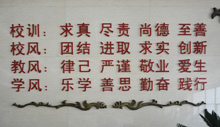 校训： 求真 尽责 尚德 至善
校风： 团结 进取 求实 创新
教风： 律己 严谨 敬业 爱生
学风： 乐学 善思 勤奋 践行